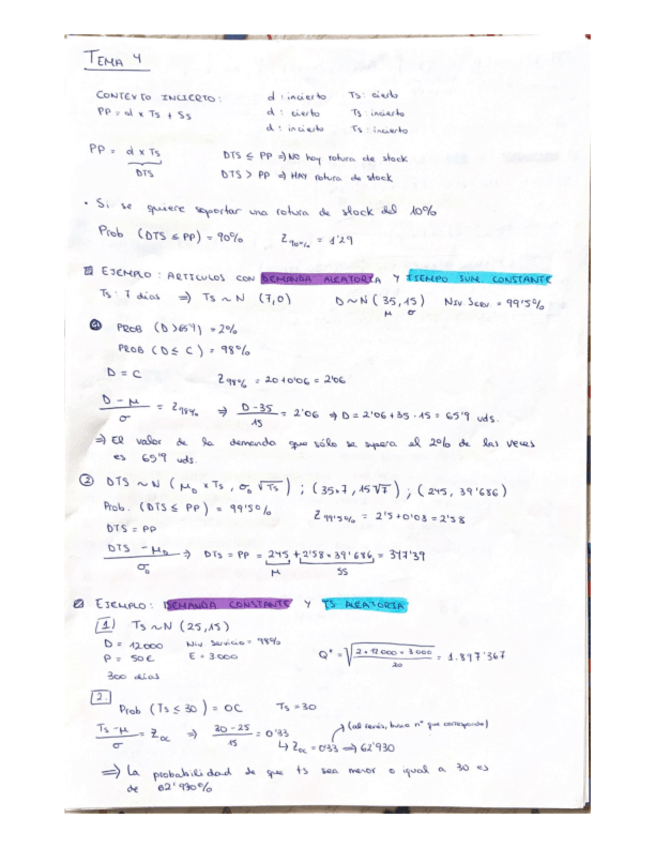 TEMA 4
CONTEXTO INCIERTO: d: incierto Ts: cierto
PP = d x Ts + Ss d: cierto Ts: incierto
d: incierto Ts: incierto
PP = d x Ts DTS ≤ PP ⇒ NO hay rotura de stock
DTS DTS > PP ⇒ HAY rotura de stock
• Si se quiere soportar una rotura de stock del 10%
Prob (DTS ≤ PP) = 90% Z90% = 1'29
EJEMPLO: ARTICULOS CON DEMANDA ALEATORIA Y TIEMPO SUM. CONSTANTE
Ts: 7 días ⇒ Ts ~ N (7,0) D ~ N (35,15) Niv Serv. = 99'5%
μ σ
PROB (D > 65'9) = 2%
PROB (D ≤ C) = 98%
D = C Z98% = 20 + 0'06 = 2'06
D - μ / σ = Z98% ⇒ D - 35 / 15 = 2'06 ⇒ D = 2'06 + 35 · 15 = 65'9 uds.
⇒ El valor de la demanda que sólo se supera el 2% de las veces
es 65'9 uds.
② DTS ~ N (μD x Ts, σD √Ts) ; (35·7, 15√7) ; (245, 39'686)
Prob. (DTS ≤ PP) = 99'5% Z99'5% = 2'5 + 0'08 = 2'58
DTS = PP
DTS - μD / σD ⇒ DTS = PP = 245 + 2'58 · 39'686 = 347'39
μ SS
EJEMPLO: DEMANDA CONSTANTE Y TS ALEATORIA
1) Ts ~ N (25,15)
D = 12000 Niv Servicio = 98%
P = 50€ E = 3000 Q* = √(2 · 12000 · 3000 / 20) = 1.897'367
300 días
2. Prob (Ts ≤ 30) = OC Ts = 30
Ts - μ / σ = Zoc ⇒ 30 - 25 / 15 = 0'33 (al revés, busco nº que corresponde)
↳ Zoc = 0'33 ⇒ 62'930
⇒ La probabilidad de que ts sea menor o igual a 30 es
de 62'930%